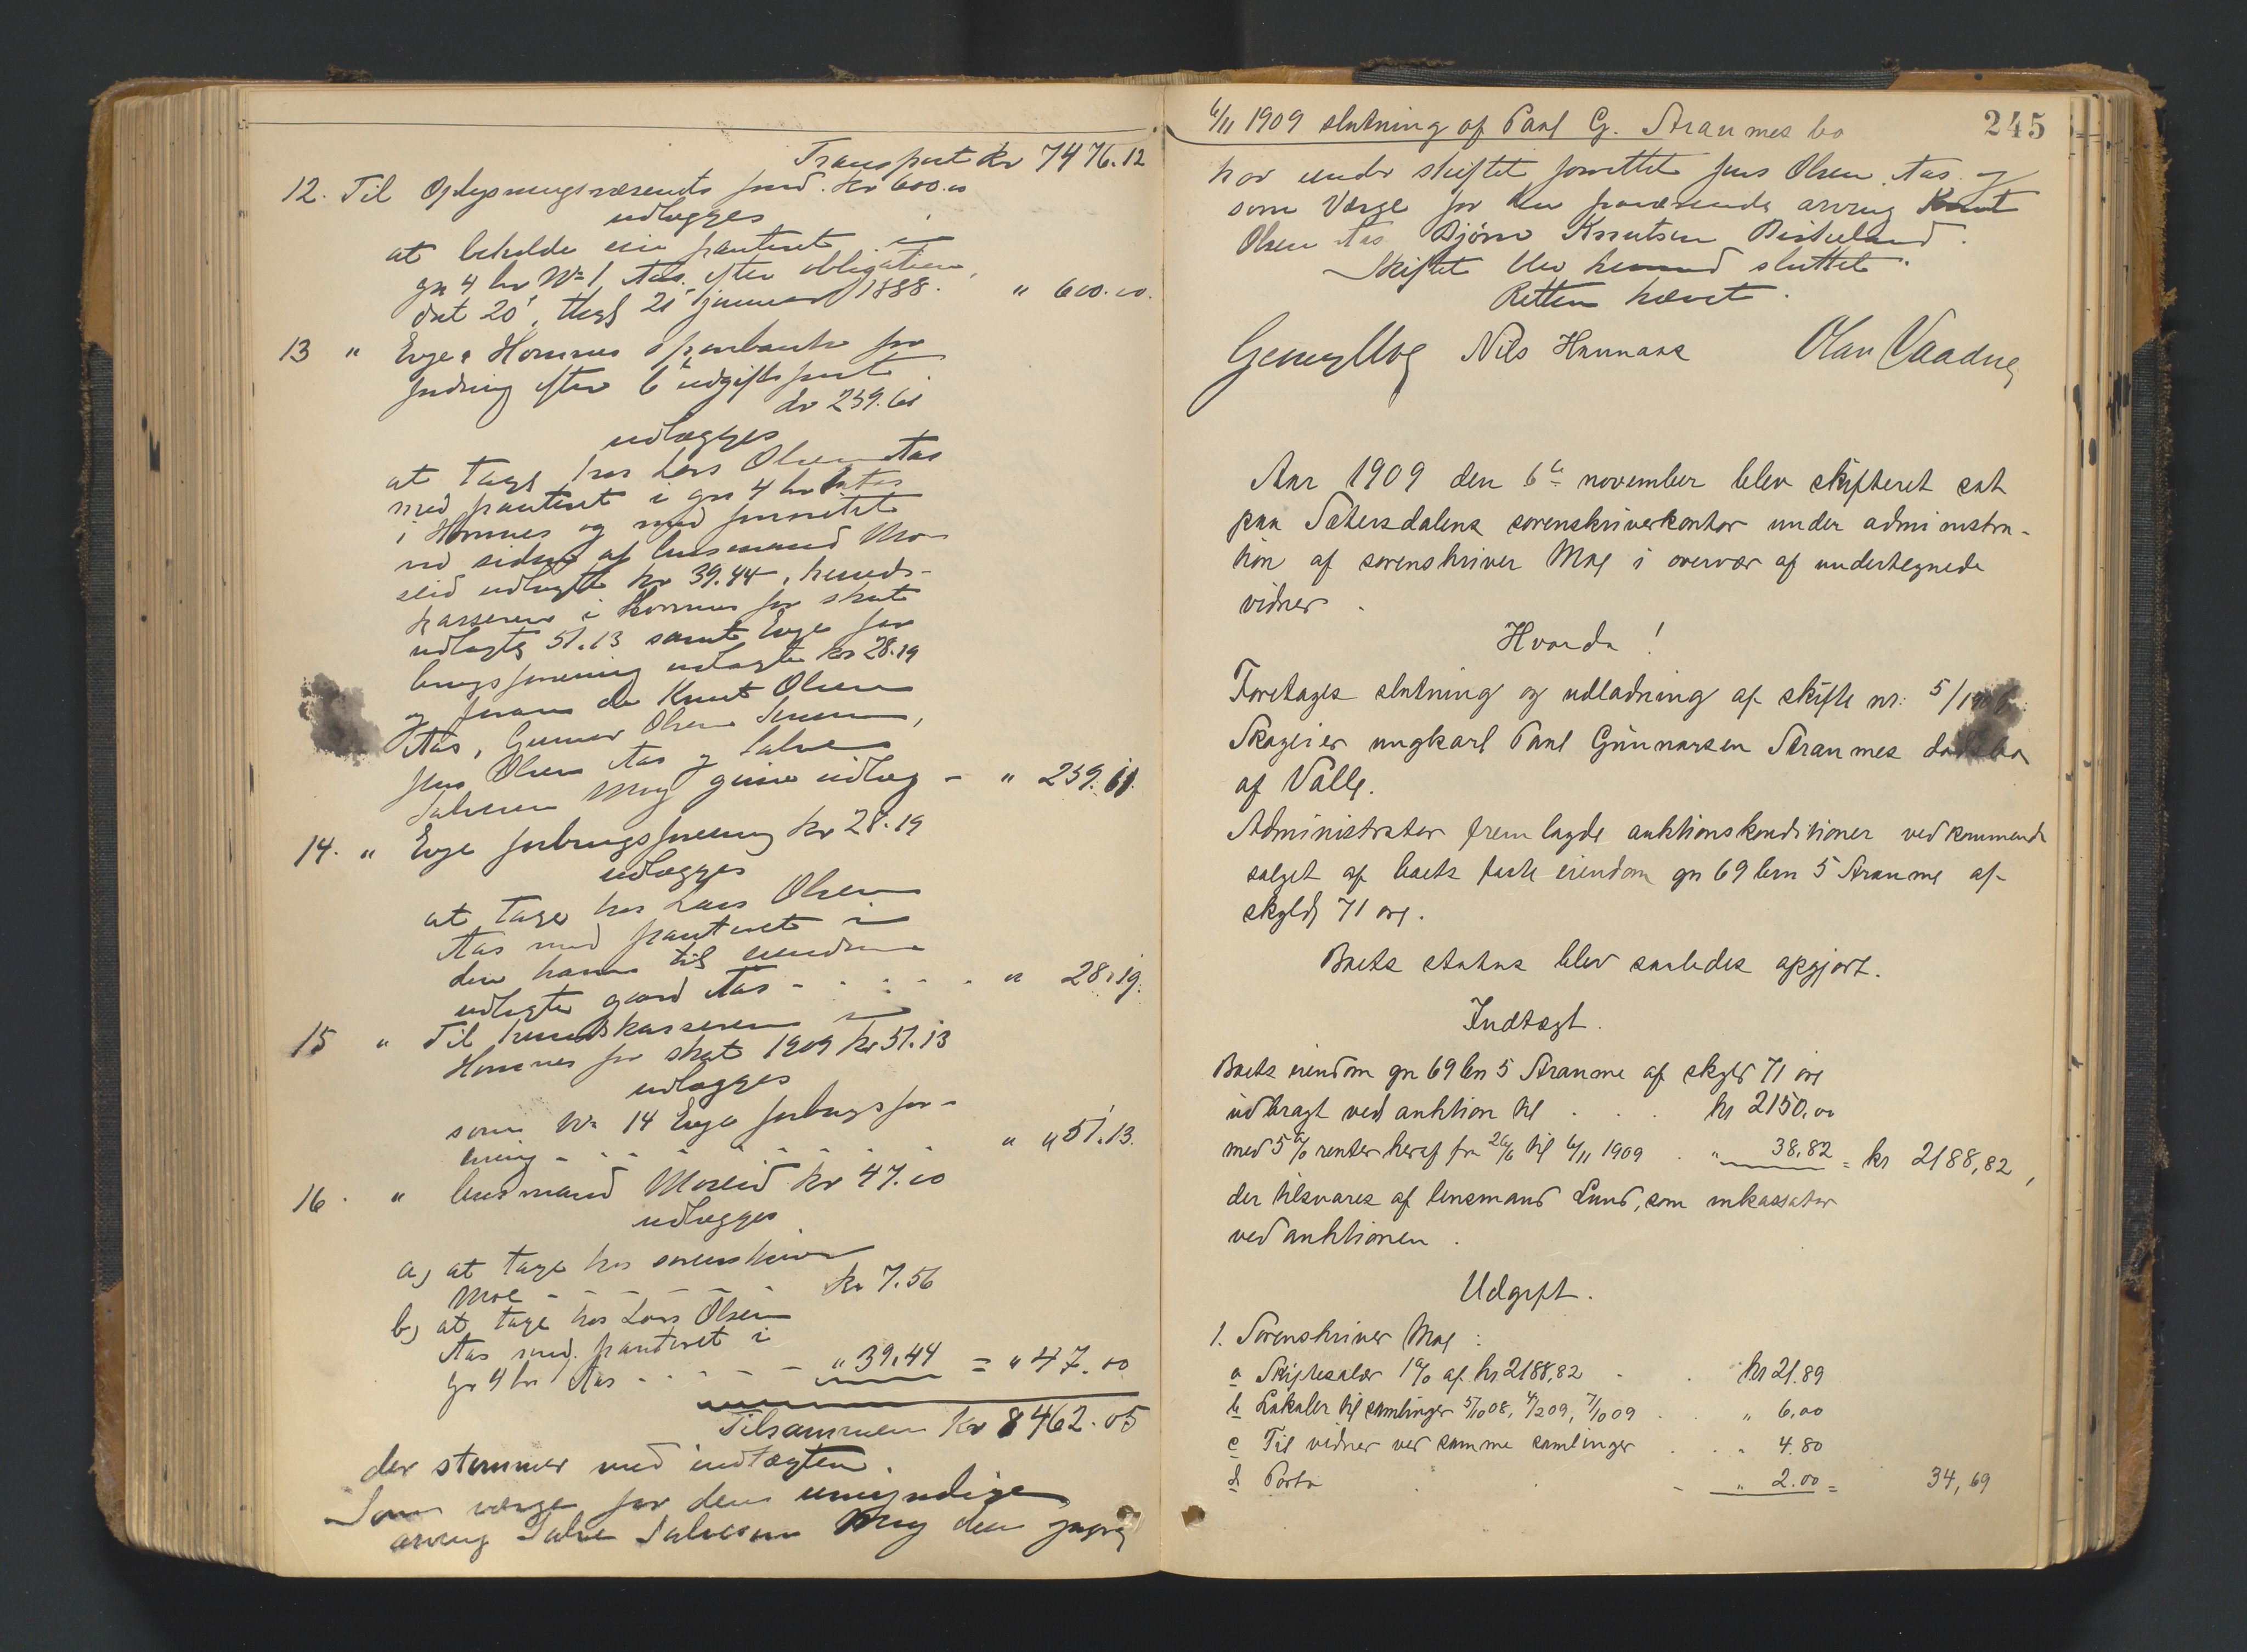 Transport kr 7476.12
12. Til Oplysningsvæsenets fond. kr 600.00
udlægges
at beholde sin panteret i
gn 4 bn No 1 Aas efter obligation
dat 20', thgl 21' januar 1888. " 600.00.
13 " Evje & Hornnes sparebank for
fordring efter 6te udgiftspost
kr 259.61
udlægges
at tage hos Lars Olsen Aas
med panteret i gn 4 bn 1 Aas
i Hornnes og med prioritet
ved siden af lensmand Mo-
seid udlagte kr 39.44, herreds-
kasseren i Hornnes for skat
udlagte 51.13 samt Evje for
brugsforening udlagte kr 28.19
og foran de Knut Olsen
Aas, Gunnar Olsen
Jens Olsen Aas og Salve
Salvesen Moy givne udlæg - " 259.61.
14. " Evje forbrugsforening kr 28.19
udlægges
at tage hos Lars Olsen
Aas med panteret i
den ham til eiendom
udlagte gaard Aas - - - - - " 28.19.
15 " Til herredskasseren i
Hornnes for skat 1909 kr 51.13
udlægges
som No 14 Evje forbrugsfor-
ening - - - - - - - " " 51.13.
16. " lensmand Moseid kr 47.00
udlægges
a) at tage hos sorenskriver
Moe - - - - - kr 7.56
b) at tage hos Lars Olsen
Aas med panteret i
gn 4 bn Aas - - - - " 39.44 = " 47.00
Tilsammen kr 8462.05
der stemmer med indtægten.
Som værge for den umyndige
arving Salve Salvesen Moy den yngre
6/11 1909 slutning af Paul G. Straumes bo 245
har under skiftet forrettet Jens Olsen Aas og
som Værge for den fraværende arving Knut
Olsen Aas Bjørn Knutsen Birkeland.
Skiftet blev hermed sluttet.
Retten hævet.
Georg Moe Nils Hannaas Olav Vaadne
Aar 1909 den 6te november blev skifteret sat
paa Sætersdalens sorenskriverkontor under administra-
tion af sorenskriver Moe i overvær af undertegnede
vidner.
Hvorda!
Foretages slutning og udlodning af skifte nr: 5/1906:
Skogeier ungkarl Paul Gunnarsen Straumes dødsbo
af Valle.
Administrator fremlagde auktionskonditioner vedkommende
salget af boets faste eiendom gn 69 bn 5 Straume af
skyld 71 øre.
Boets status blev saaledes opgjort.
Indtægt.
Boets eiendom gn 69 bn 5 Straume af skyld 71 øre
udbragt ved auktion til . . . kr 2150.00
med 5 % renter heraf fra 26/6 til 6/11 1909 . " 38,82 = kr 2188,82,
der tilsvares af lensmand Lund, som inkassator
ved auktionen.
Udgift.
1. Sorenskriver Moe:
a Skiftesalær 1 % af kr 2188,82 . . kr 21.89
b Lokaler til samlinger 5/10 08, 4/2 09, 7/10 09 . . " 6.00
c Til vidner ved samme samlinger . . " 4.80
d Porto . . - " 2.00 = 34,69